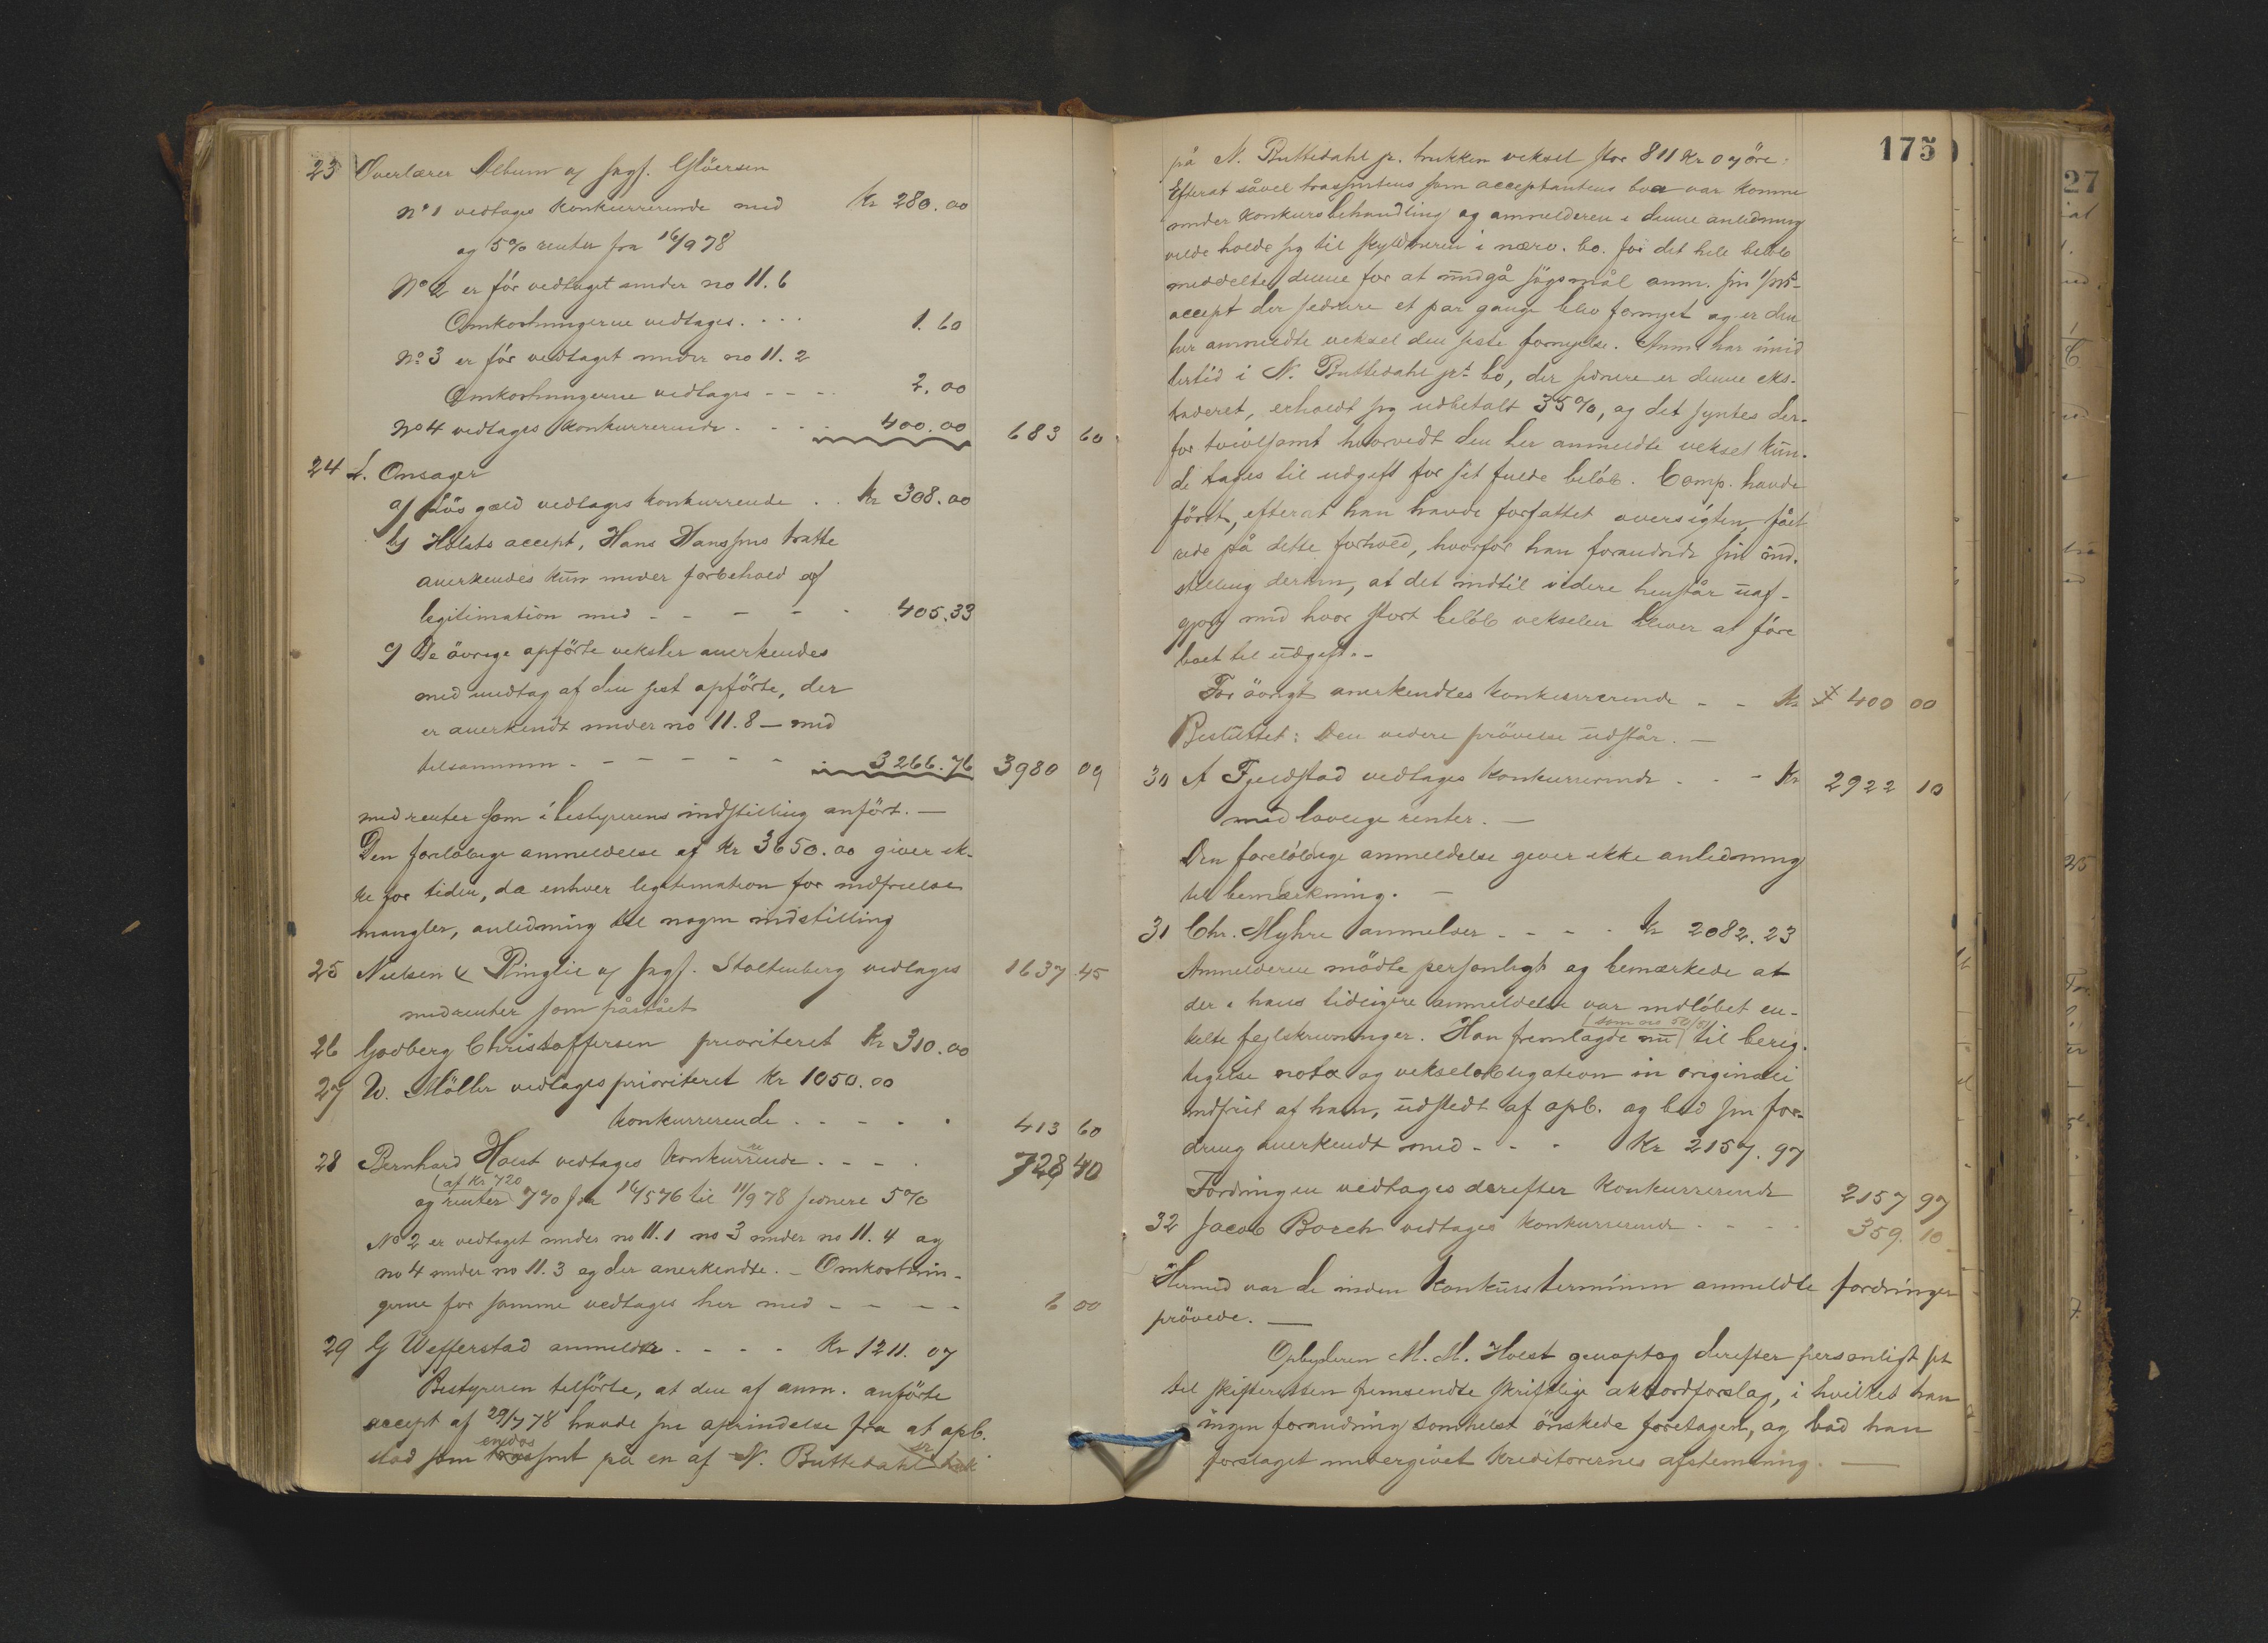 23 Overlærer Album og sagf. Glöersen
No 1 vedtages konkurrerende med Kr 280.00
og 5% renter fra 16/9 78
No 2 er før vedtaget under no 11.6
Omkostningerne vedtages. . . . 1.60
No 3 er før vedtaget under no 11.2
Omkostningerne vedtages - - - . 2.00
No 4 vedtages konkurrerende. - - . 400.00 683 60
24 L. Onsager
a) Løs gæld vedtages konkurrende . . Kr 308.00
b) Holsts accept, Hans Hanssens tratte
anerkendes kun under forbehold af
legitimation med - - - - - 405.33
c) De övrige opförte veksler anerkendes
med undtag af den sist opförte, der
er anerkendt under no 11.8 - med
tilsammen. - - - - - - 3266.76 3980 09
med renter som i bestyrerens indstilling anfört. -
Den foreløbige anmeldelse af Kr 3650.00 giver ik-
ke for tiden, da enhver legitimation for indfrielse
mangler, anledning til nogen indstilling
25 Nielsen & Ringlie og sagf. Stoltenberg vedtages 1637 45
med renter som påstået
26 Godberg Christoffersen prioriteret Kr 310.00
27 W. Möller vedtages prioriteret Kr 1050.00
konkurrerende . . - - . . 413 60
28 Bernhard Holst vedtages konkurrerende. - - . 728 40
(af Kr 720
og renter 7% fra 16/5 76 til 11/9 78 senere 5%
No 2 er vedtaget under no 11.1 no 3 under no 11.4 og
no 4 under no 11.3 og der anerkendte. - Omkostnin-
gerne for samme vedtages her med - - - - 6 00
29 G Wefferstad anmelder. - - - Kr 1211.07
Bestyreren tilförte, at den af anm. anförte
accept af 29/7 78 havde sin oprindelse fra at opb.
endos
stod som sent på en af N. Buttedahl sr
175
på N. Buttedahl jr. trukken veksel stor 811 Kr 07 öre:
Efterat såvel trassentens som acceptantens boer var komne
under konkursbehandling og anmelderen i denne anledning
vilde holde sig til skyldneren i nærv. bo. for det hele beløb
meddelte denne for at undgå søgsmål anm. sin
accept der senere et par gange blev fornyet og er den
her anmeldte veksel den siste fornyelse. Anm. har imid
lertid i N. Buttedahl jrs bo, der senere er denne eks-
traderet, erholdt sig udbetalt 35%, og det syntes der-
for tvivlsomt hvorvidt den her anmeldte veksel kun-
de tages til udgift for sit fulde beløb. Comp. havde
först, efterat han havde forfattet oversigten, fået
rede på dette forhold, hvorfor han forandrede sin ind-
stilling derhen, at det indtil videre henstår uaf-
gjort med hvor stort beløb vekselen bliver at føre
boet til udgift. -
For övrigt anerkendtes konkurrerende - - Kr 400 00
Besluttet: Den videre prövelse udstår. -
30 A Fjeldstad vedtages konkurrerende - - - Kr 2922 10
med lovlige renter. -
Den foreløbige anmeldelse giver ikke anledning
til bemærkning. -
31 Chr. Myhre anmelder - - - . Kr 2082.23
Anmelderen mödte personligt og bemærkede at
der i hans tidligere anmeldelse var indløbet en-
(som no 50/51)
kelte fejlskrivninger. Han fremlagde nu til berig-
tigelse nota og vekselobligation in originali
indfriet af ham, udstedt af opb. og bad sin for-
dring anerkendt med - - - Kr 2157.97
Fordringen vedtages derefter konkurrerende 2157 97
32 Jacob Borch vedtages konkurrerende - - - - 359. 10
Hermed var de inden konkursterminen anmeldte fordringer
prövede. -
Opbyderen M. M. Holst genoptog derefter personligt sit
til skifteretten fremsendte skriftlige akkordforslag, i hvilket han
ingen forandring somhelst önskede foretagen, og bad han
forslaget undergivet kreditorernes afstemning. -
27
25